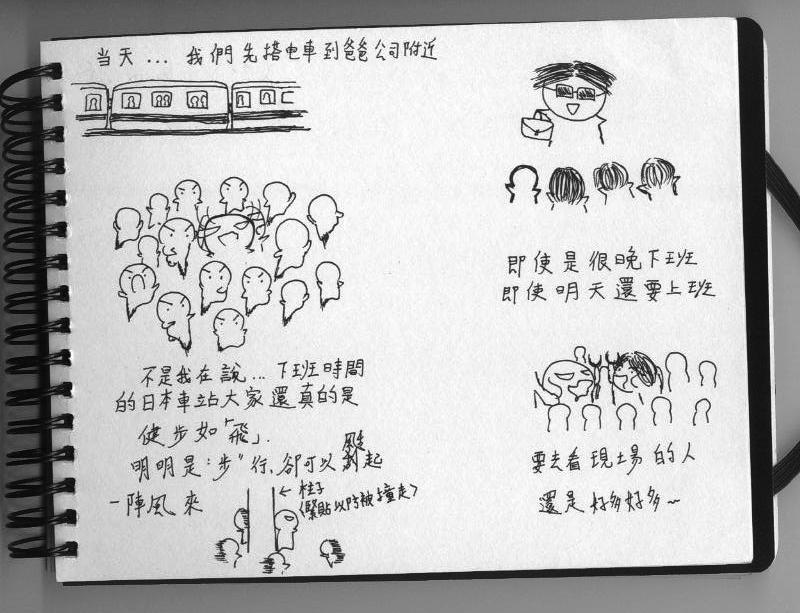 当天... 我們先搭电車到爸爸公司附近
不是我在說... 下班時間
的日本車站大家還真的是
健步如「飛」.
明明是"步"行,卻可以颳起
一陣風來
←柱子
(緊貼以防被撞走)
即使是很晚下班
即使明天還要上班
要去看現場的人
還是好多好多~